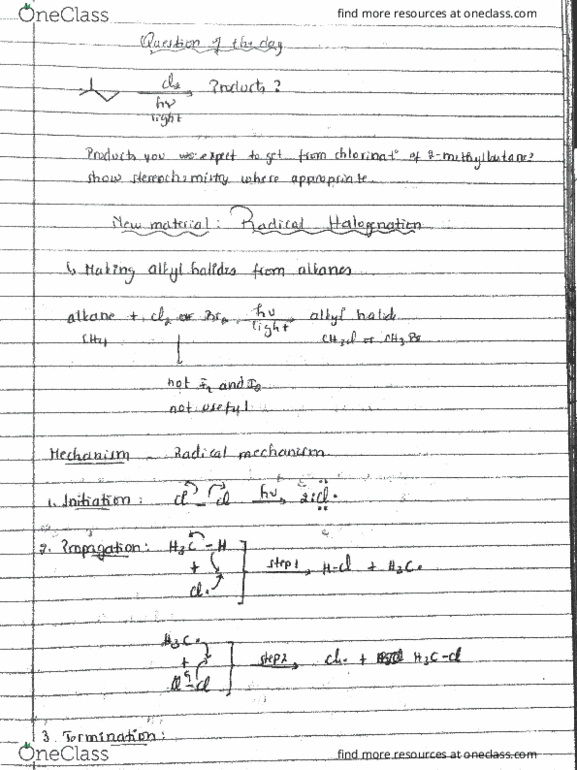 OneClass find more resources at oneclass.com
Question of the day
Cl₂
hν
light
Products?
Products you expect to get from chlorinatⁿ of 2-methylbutane?
show stereochemistry where appropriate
New material: Radical Halogenation
↳ Making alkyl halides from alkanes
alkane + Cl₂ or Br₂ hν light → alkyl halid
CH₄ CH₃Cl or CH₃Br
not F₂ and I₂
not useful
Mechanism - Radical mechanism
1. Initiation: Cl–Cl hν → 2:Cl·
2. Propagation: H₃C–H
+
Cl·
step1 → H-Cl + H₃C·
H₃C·
+
Cl–Cl
step2 → Cl· + H₃C-Cl
3. Termination:
OneClass find more resources at oneclass.com